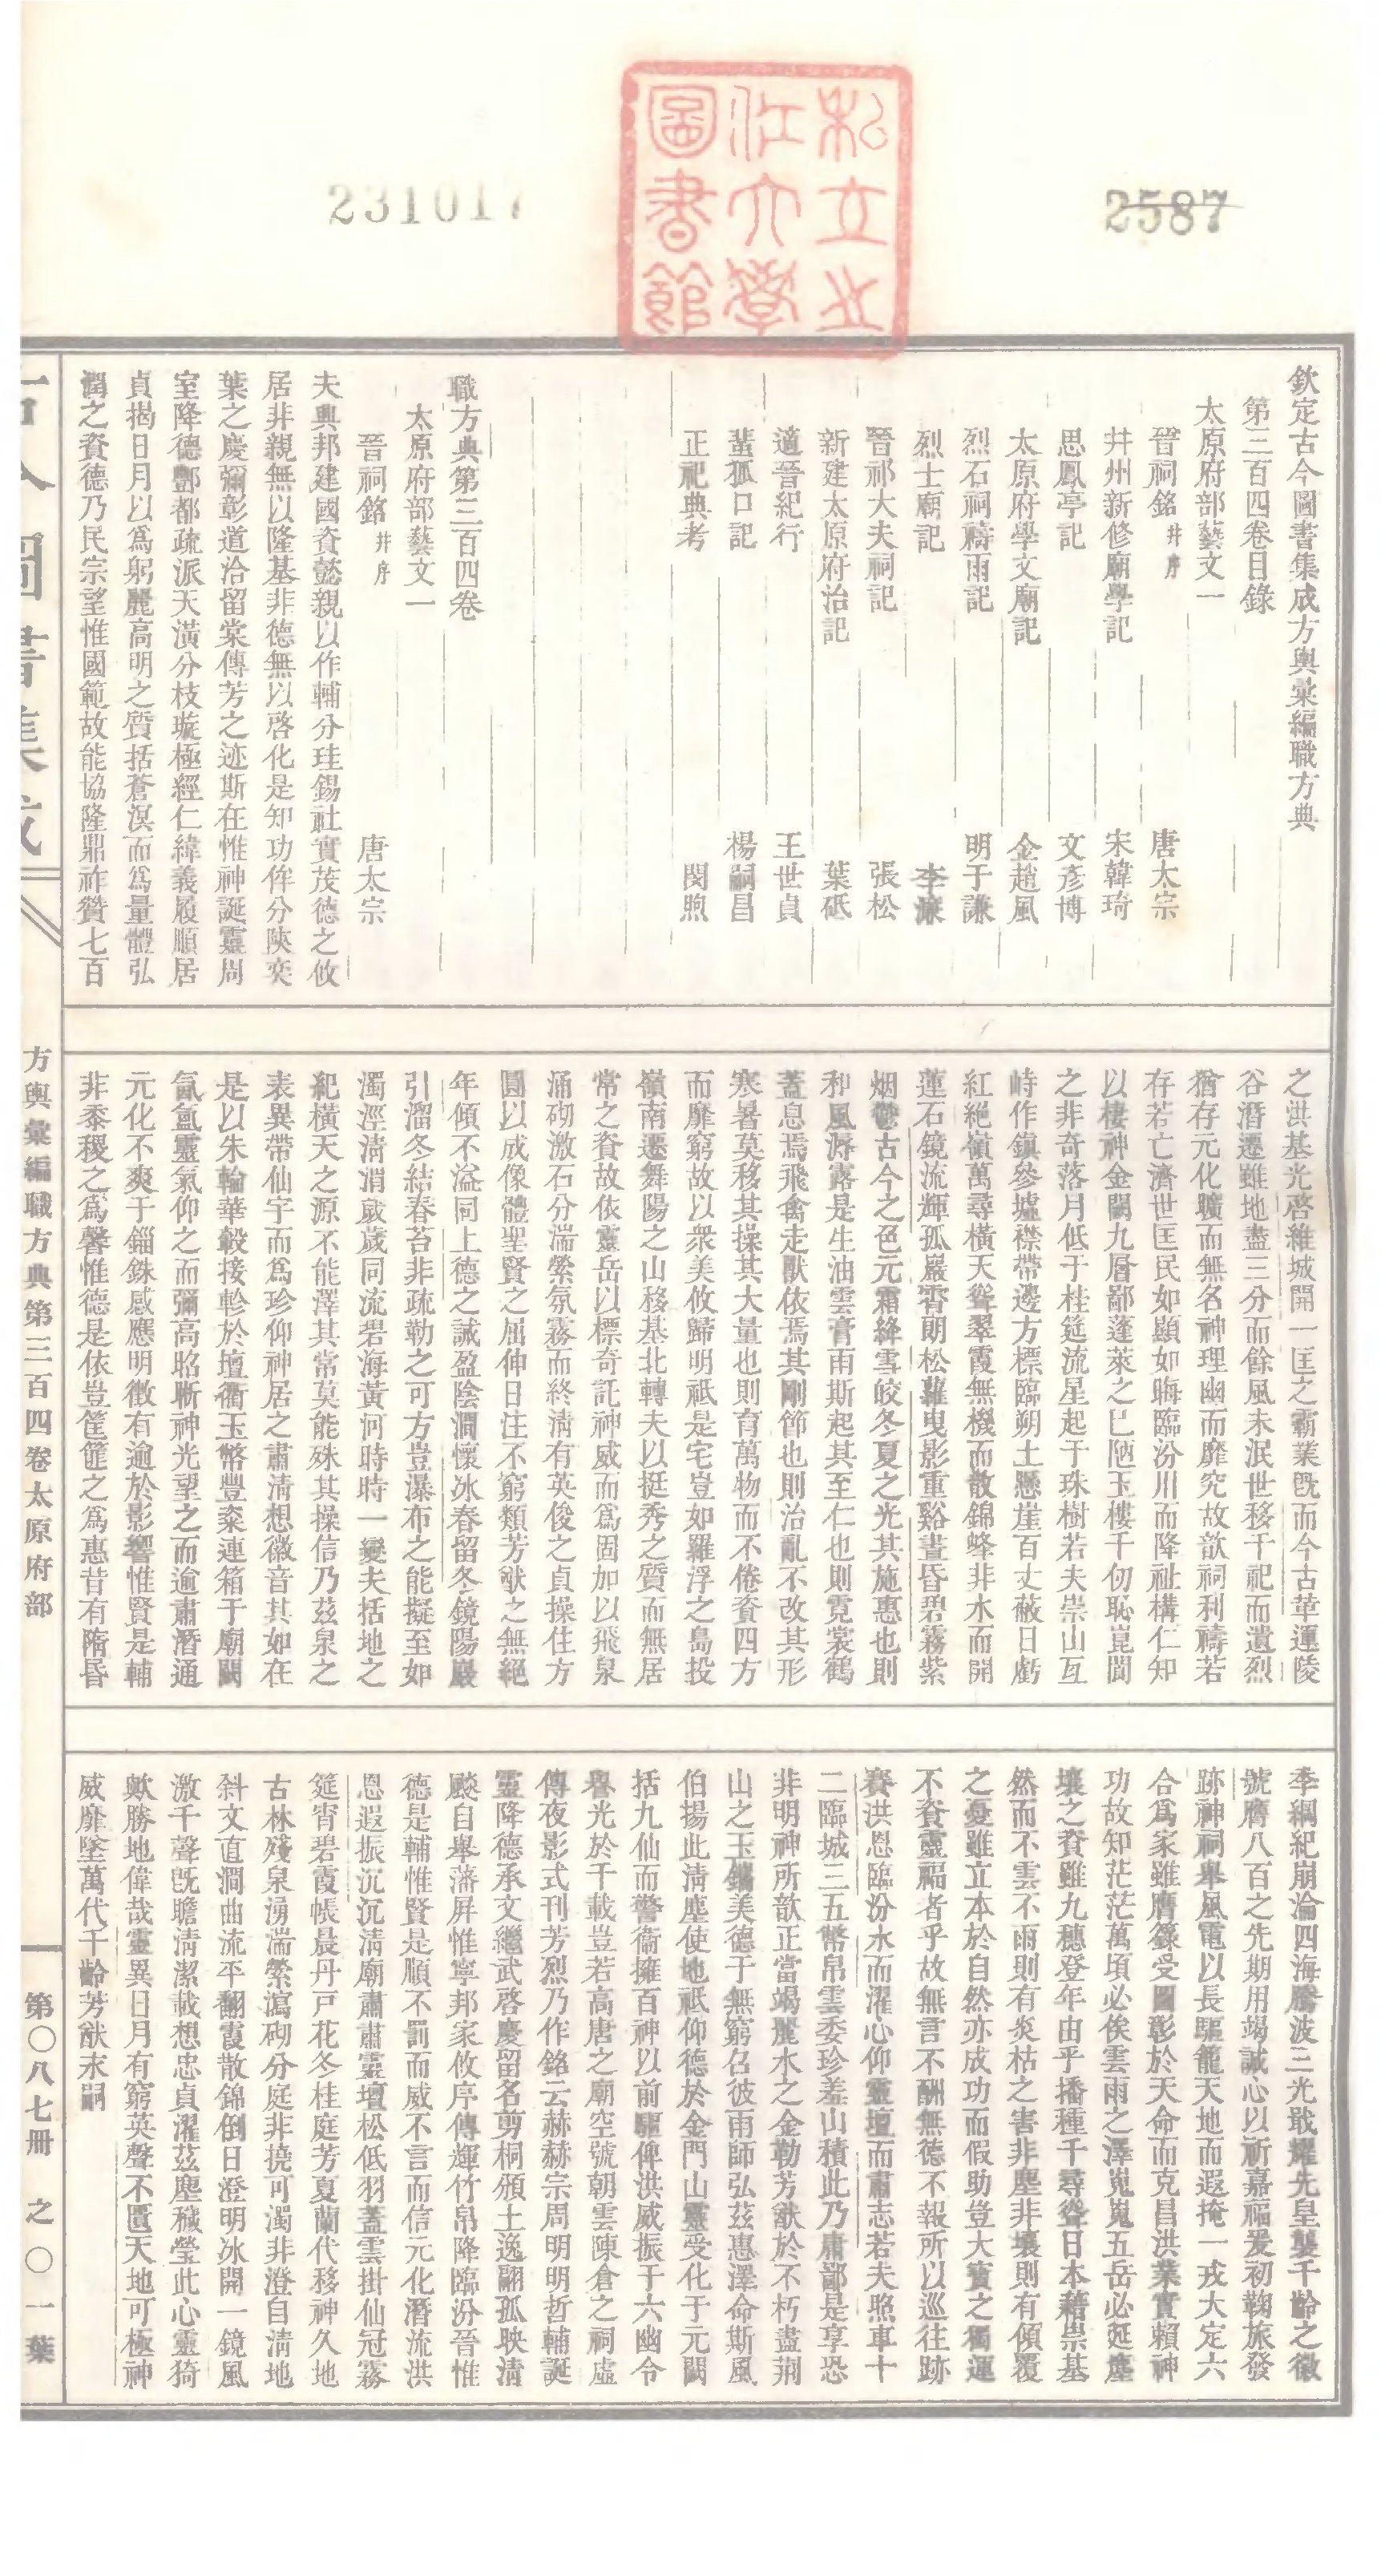 2587
231017
私立北
江大學
圖書館
欽定古今圖書集成方輿彙編職方典
第三百四卷目錄
太原府部藝文一
晉祠銘 并序 唐太宗
幷州新修廟學記 宋韓琦
思鳳亭記 文彥博
太原府學文廟記 金趙風
烈石祠禱雨記 明于謙
烈士廟記 李濂
晉祁大夫祠記 張松
新建太原府治記 葉砥
適晉紀行 王世貞
蜚狐口記 楊嗣昌
正祀典考 閔煦
職方典第三百四卷
太原府部藝文一
晉祠銘 并序 唐太宗
夫興邦建國資懿親以作輔分珪錫社實茂德之攸
居非親無以隆基非德無以啓化是知功侔分陝奕
葉之慶彌彰道洽留棠傳芳之迹斯在惟神誕靈周
室降德酆都疏派天潢分枝璇極經仁緯義履順居
貞揭日月以爲躬麗高明之質括蒼溟而爲量體弘
潤之資德乃民宗望惟國範故能協隆鼎祚贊七百
之洪基光啓維城開一匡之霸業旣而今古革運陵
谷潛遷雖地盡三分而餘風未泯世移千祀而遺烈
猶存元化曠而無名神理幽而靡究故歆祠利禱若
存若亡濟世匡民如顯如晦臨汾川而降祉構仁知
以棲神金闕九層鄙蓬萊之已陋玉樓千仞恥崑閬
之非奇落月低于桂筵流星起于珠樹若夫崇山亙
峙作鎭參墟襟帶邊方標臨朔土懸崖百丈蔽日虧
紅絕嶺萬尋橫天聳翠霞無機而散錦峰非水而開
蓮石鏡流輝孤巖霄朗松蘿曳影重谿晝昏碧霧紫
烟鬱古今之色元霜絳雪皎冬夏之光其施惠也則
和風溽露是生油雲膏雨斯起其至仁也則霓裳鶴
蓋息焉飛禽走獸依焉其剛節也則治亂不改其形
寒暑莫移其操其大量也則育萬物而不倦資四方
而靡窮故以衆美攸歸明祗是宅豈如羅浮之島投
嶺南遷舞陽之山移基北轉夫以挺秀之質而無居
常之資故依靈岳以標奇託神威而爲固加以飛泉
涌砌激石分湍縈氛霧而終淸有英俊之貞操住方
圓以成像體聖賢之屈伸日注不窮類芳猷之無絕
年傾不溢同上德之誠盈陰澗懷冰春留冬鏡陽巖
引溜冬結春苔非疏勒之可方豈瀑布之能擬至如
濁涇淸渭歲歲同流碧海黃河時時一變夫括地之
紀橫天之源不能澤其常莫能殊其操信乃茲泉之
表異帶仙宇而爲珍仰神居之肅淸想徽音其如在
是以朱輪華轂接軫於壇衢玉幣豐粢連箱于廟闕
氤氳靈氣仰之而彌高昭晰神光望之而逾肅潛通
元化不爽于錙銖感應明徵有逾於影響惟賢是輔
非黍稷之爲馨惟德是依豈筐篚之爲惠昔有隋昏
季綱紀崩淪四海騰波三光戢耀先皇襲千齡之徽
號膺八百之先期用竭誠心以祈嘉福爰初鞠旅發
跡神祠舉風電以長驅籠天地而遐掩一戎大定六
合爲家雖膺籙受圖彰於天命而克昌洪業實賴神
功故知茫茫萬頃必俟雲雨之澤嵬嵬五岳必延塵
壤之資雖九穗登年由乎播種千尋聳日本藉崇基
然而不雲不雨則有炎枯之害非塵非壤則有傾覆
之憂雖立本於自然亦成功而假助豈大寶之獨運
不資靈福者乎故無言不酬無德不報所以巡往跡
賽洪恩臨汾水而濯心仰靈壇而肅志若夫照車十
二臨城三五幣帛雲委珍羞山積此乃庸鄙是享恐
非明神所歆正當竭麗水之金勒芳猷於不朽盡荆
山之玉鐫美德于無窮召彼雨師弘茲惠澤命斯風
伯揚此淸塵使地祗仰德於金門山靈受化于元闕
括九仙而警衞擁百神以前驅俾洪威振于六幽令
譽光於千載豈若高唐之廟空號朝雲陳倉之祠虛
傳夜影式刊芳烈乃作銘云赫赫宗周明明哲輔誕
靈降德承文繼武啓慶留名剪桐頒土逸翮孤映淸
飈自舉藩屏惟寧邦家攸序傳輝竹帛降臨汾晉惟
德是輔惟賢是順不罰而威不言而信元化潛流洪
恩遐振沉沉淸廟肅肅靈壇松低羽蓋雲掛仙冠霧
筵宵碧霞帳晨丹戸花冬桂庭芳夏蘭代移神久地
古林殘泉湧湍縈瀉砌分庭非撓可濁非澄自淸地
斜文直澗曲流平翻霞散錦倒日澄明冰開一鏡風
激千聲旣瞻淸潔載想忠貞濯茲塵穢瑩此心靈猗
歟勝地偉哉靈異日月有窮英聲不匱天地可極神
威靡墜萬代千齡芳猷末嗣
古今圖書集成
方輿彙編職方典第三百四卷太原府部
第〇八七冊 之〇一葉